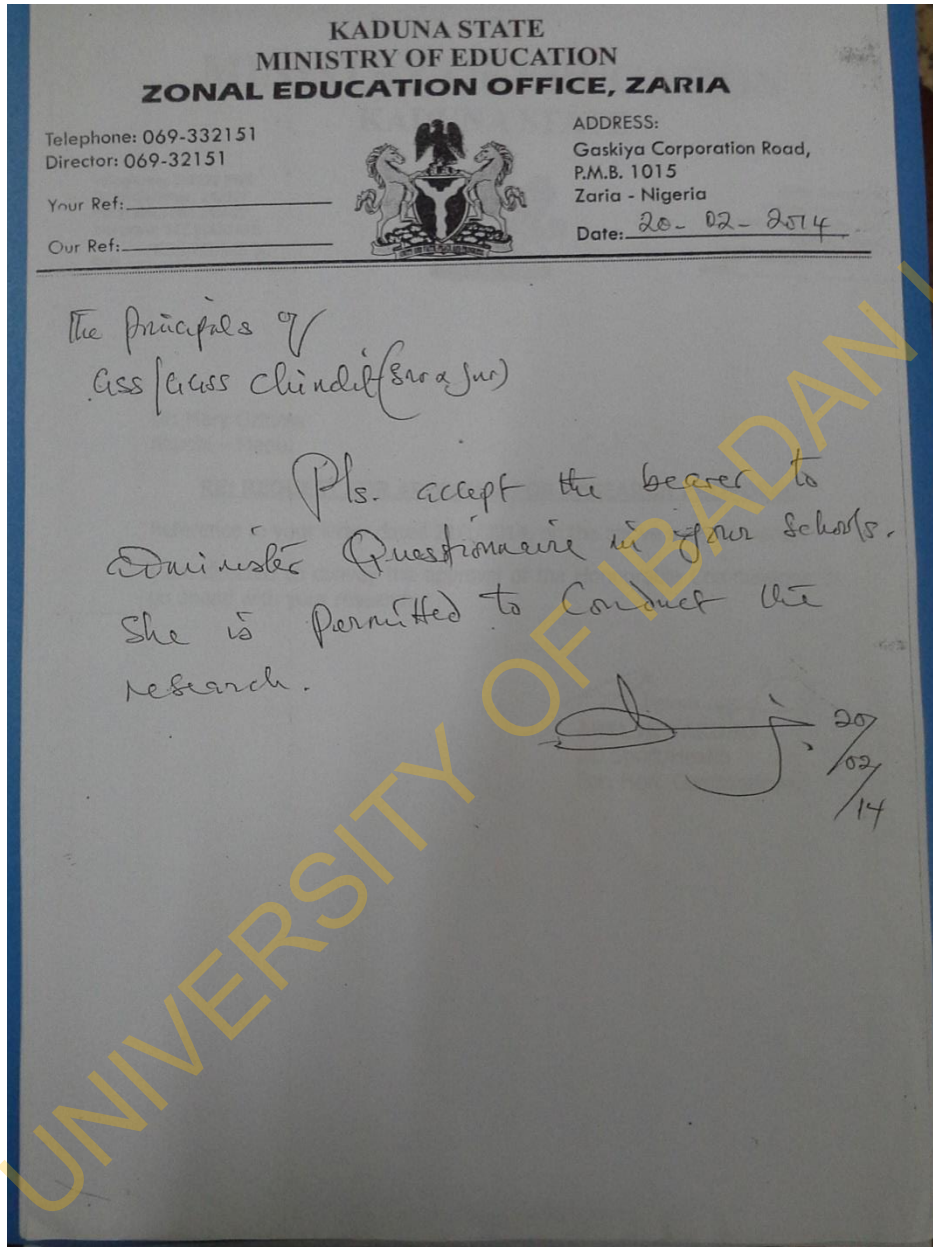 KADUNA STATE
MINISTRY OF EDUCATION
ZONAL EDUCATION OFFICE, ZARIA
Telephone: 069-332151
Director: 069-32151
Your Ref:
Our Ref:
ADDRESS:
Gaskiya Corporation Road,
P.M.B. 1015
Zaria - Nigeria
Date: 20-02-2014
The Principals of
GSS/GGSS Chindit (Snr & Jnr)
Pls. accept the bearer to
administer Questionnaire in your schools.
She is permitted to conduct the
research.
20/02/14
UNIVERSITY OF IBADAN